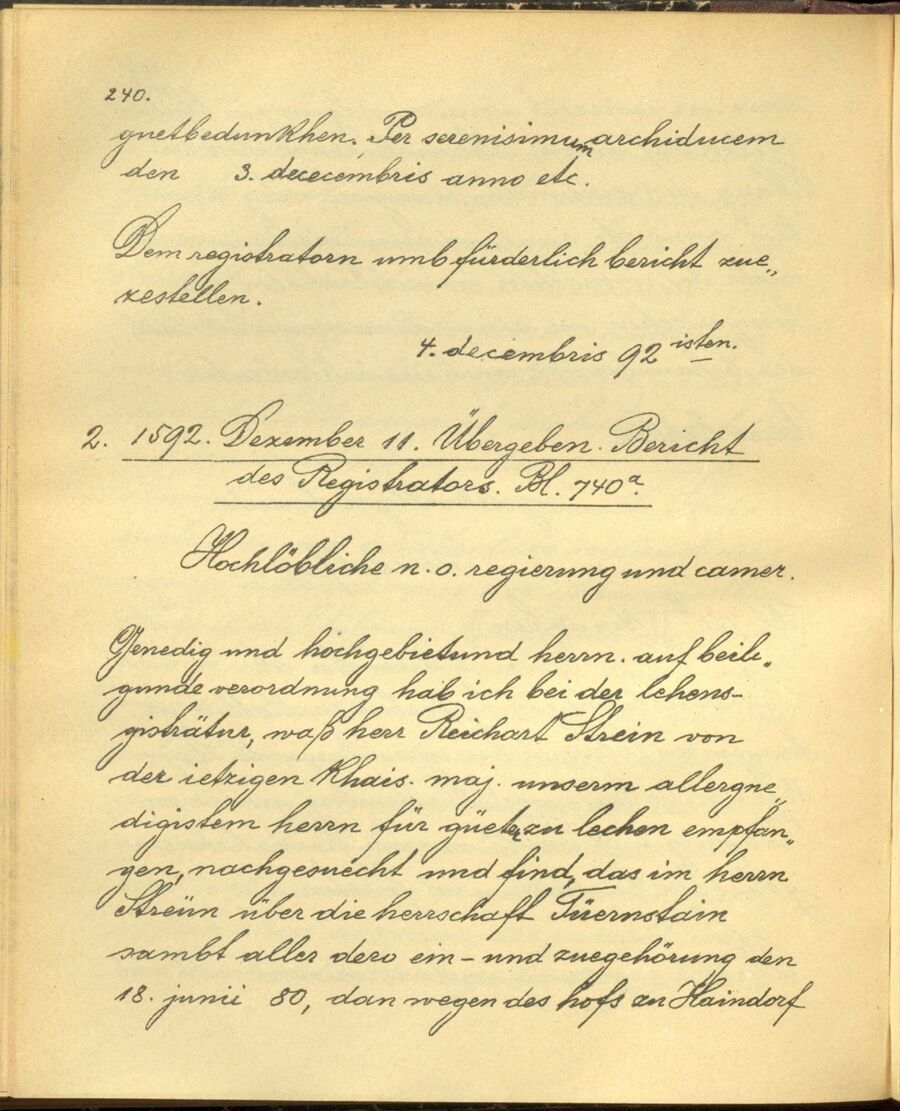 240.
guetbedunkhen. Per serenisimum archiducem
den 3. dececembris anno etc.
Dem registratorn umb fürderlich bericht zue„
zestellen.
4. decembris 92 isten.
2. 1592. Dezember 11. Übergeben. Bericht
des Registrators. Bl. 740a.
Hochlöbliche n. o. regierung und camer.
Genedig und hochgebietund herrn. auf beili„
gunde verordnung hab ich bei der lehens-
gisträtur, waß herr Reichart Strein von
der ietzigen Khais. maj. unserm allergne„
digistem herrn für güeter zu lechen empfan„
gen, nachgesuecht und find, das im herrn
Streün über die herrschaft Tüernstain
sambt aller dero ein- und zuegehörung den
18. junii 80, dan wegen des hofs zu Haindorf